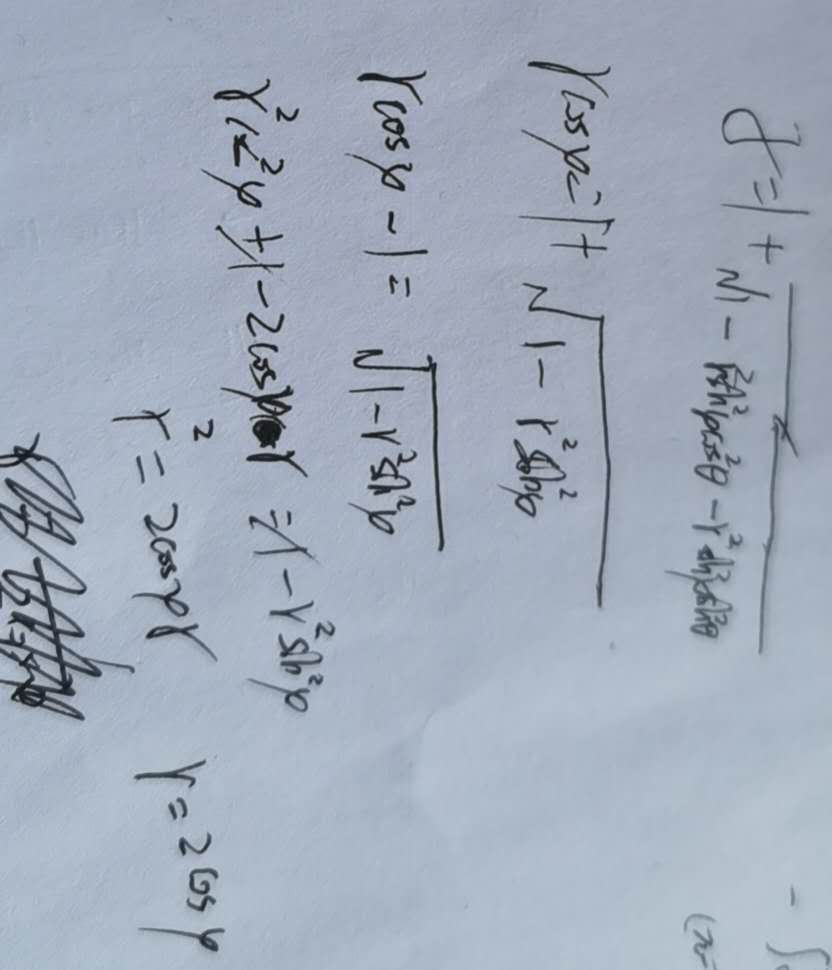 z = 1 + √(1 - r²sin²φcos²θ - r²sin²φsin²θ)
rcosφ = 1 + √(1 - r²sin²φ)
rcosφ - 1 = √(1 - r²sin²φ)
r²cos²φ + 1 - 2cosφ r = 1 - r²sin²φ
r² = 2cosφ r    r = 2cosφ